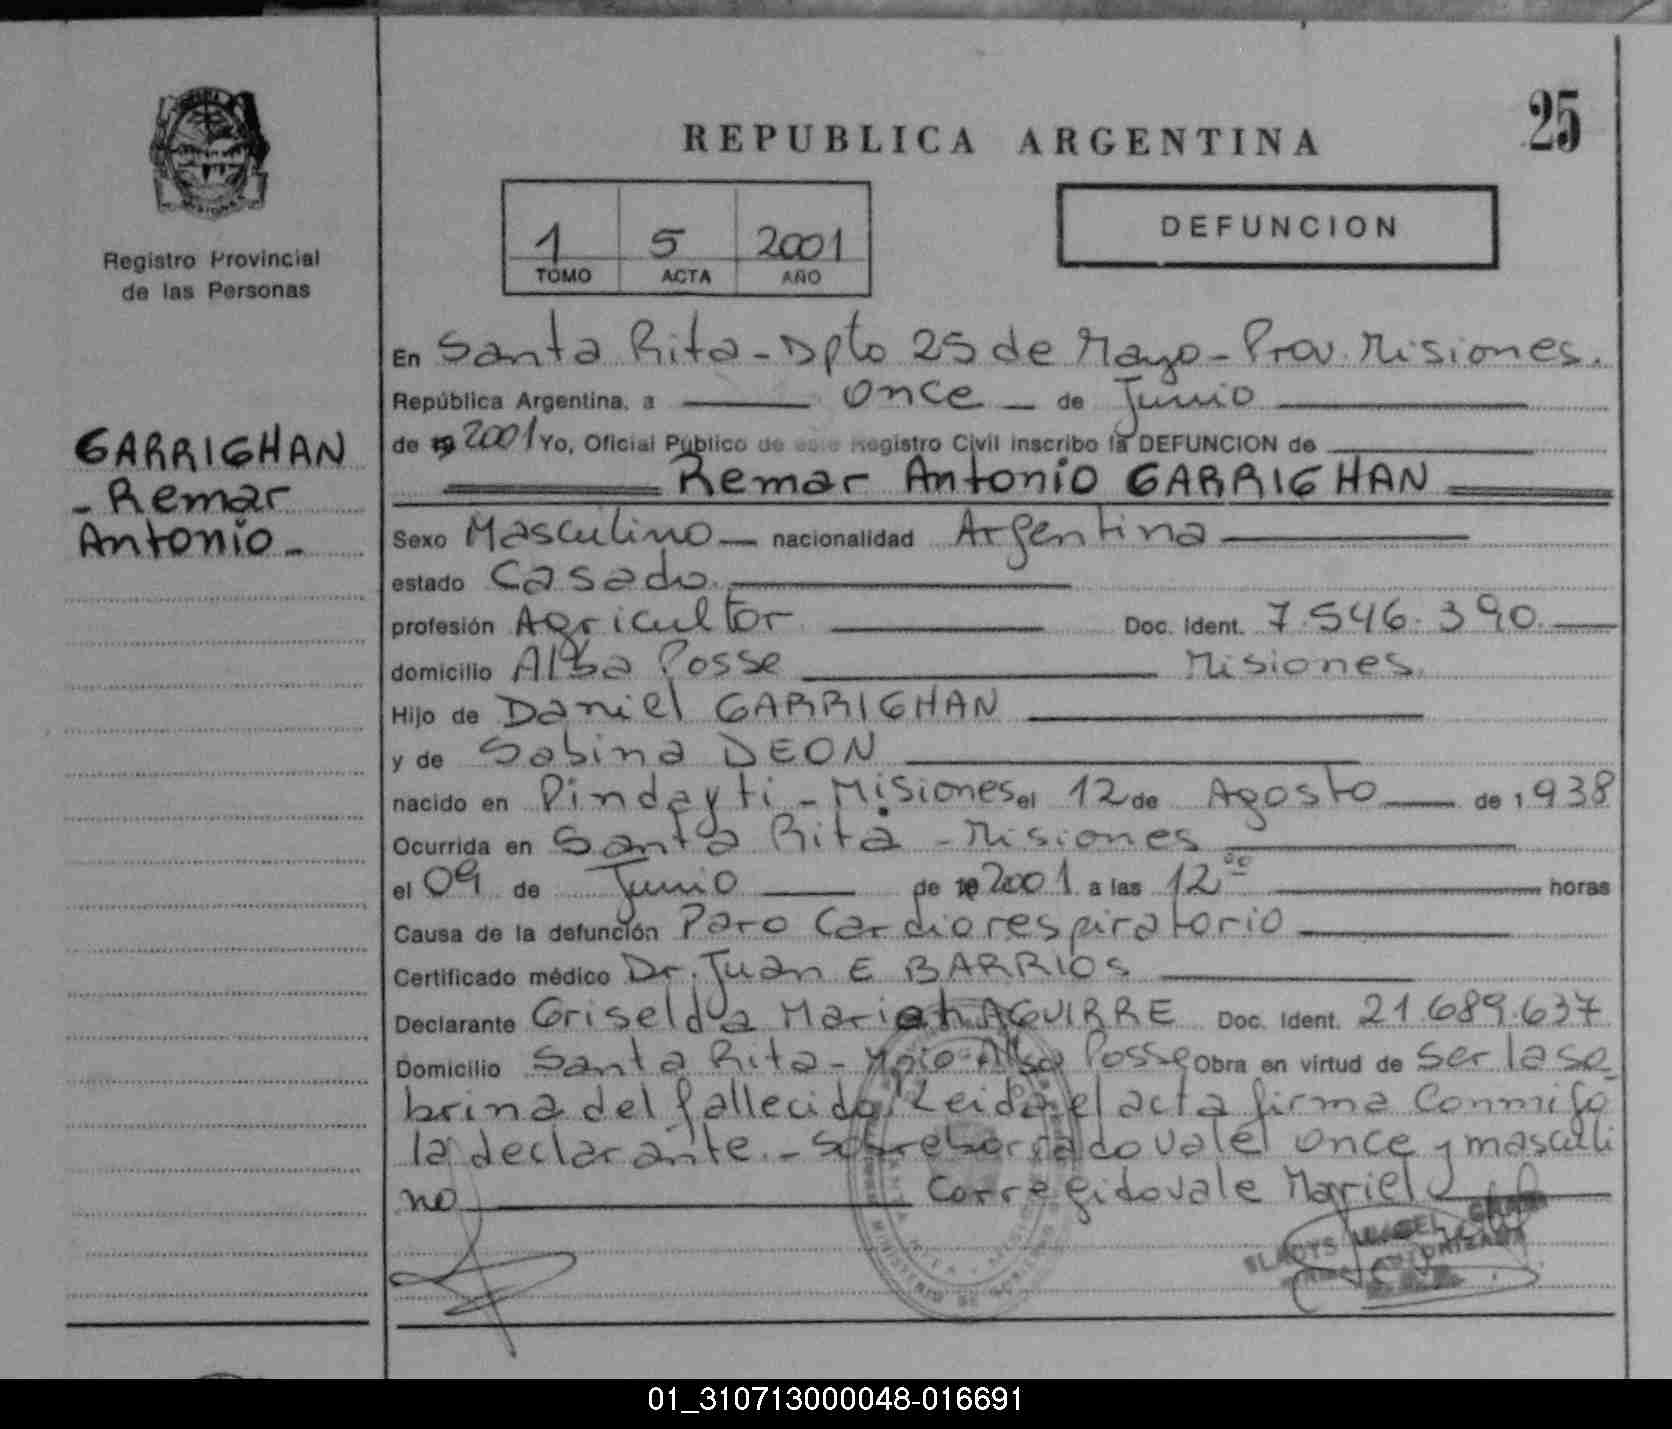 25
REPUBLICA ARGENTINA
DEFUNCION
1 5 2001
TOMO ACTA AÑO
Registro Provincial
de las Personas
GARRIGHAN
- Remar
Antonio -
En Santa Rita - Dpto 25 de Mayo - Prov. Misiones.
República Argentina, a once - de Junio
de 19 2001 Yo, Oficial Público de este Registro Civil inscribo la DEFUNCION de
Remar Antonio GARRIGHAN
Sexo Masculino - nacionalidad Argentina
estado Casado.
profesión Agricultor Doc. Ident. 7.546.390.
domicilio Alba Posse Misiones.
Hijo de Daniel GARRIGHAN
y de Sabina DEON
nacido en Pindayti - Misiones el 12 de Agosto de 1938
Ocurrida en Santa Rita - Misiones
el 09 de Junio de 19 2001. a las 12°° horas
Causa de la defunción Paro Cardiorespiratorio
Certificado médico Dr. Juan E BARRIOS
Declarante Griselda Mariel AGUIRRE Doc. Ident. 21.689.637
Domicilio Santa Rita - Mpio Alba Posse Obra en virtud de Ser la so
brina del fallecido Leida el acta firma Conmigo
la declarante. - Sobreborrado vale once y masculi
no Corregido vale Mariel
01_310713000048-016691